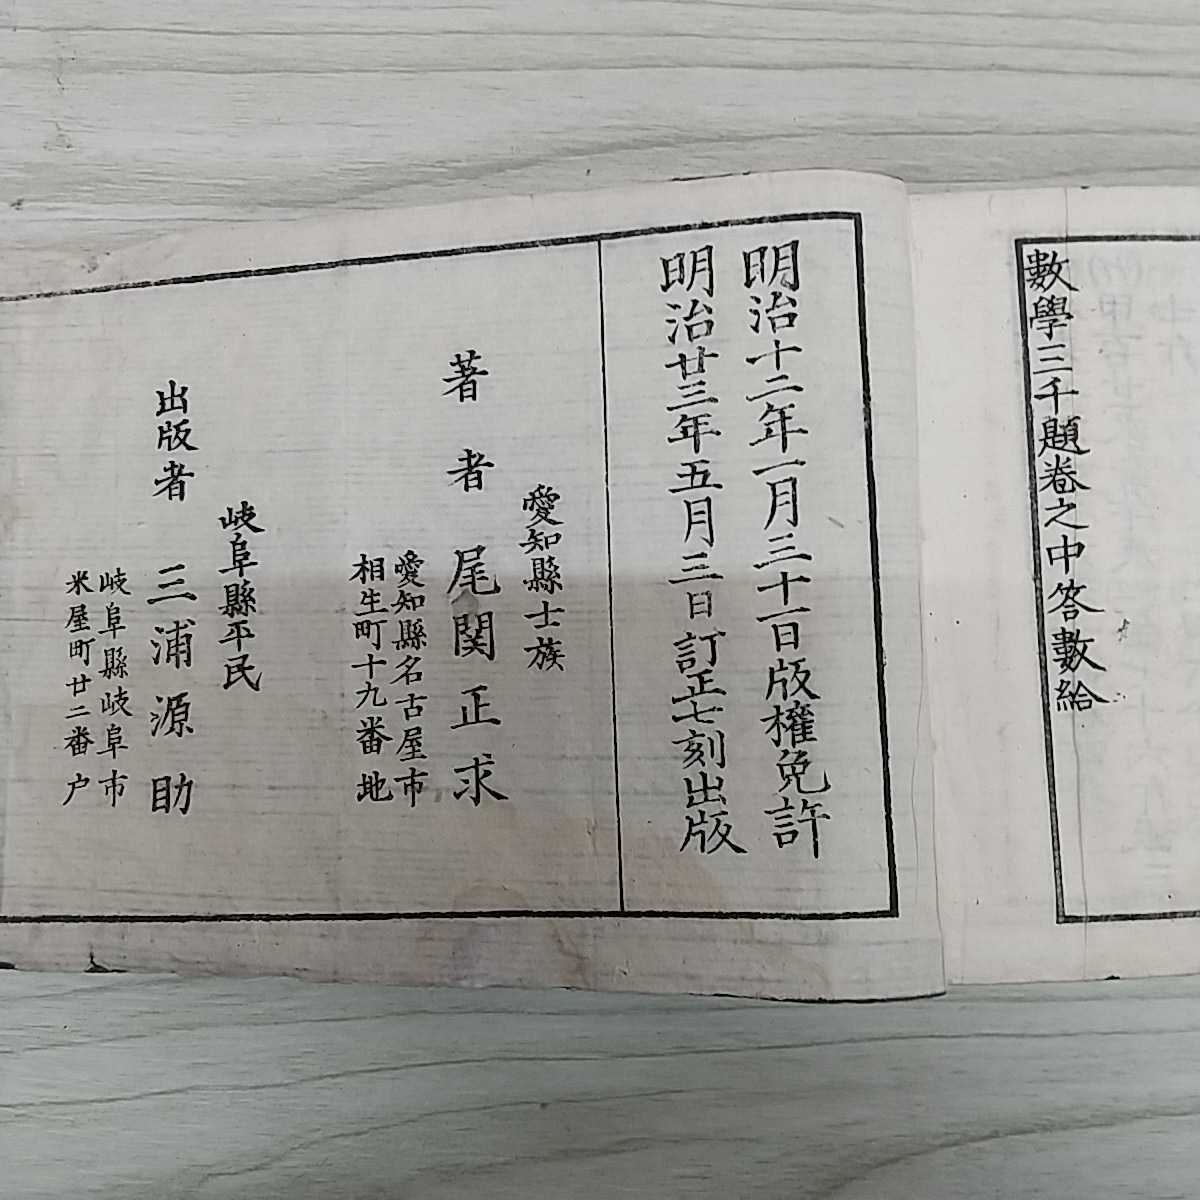 數學三千題卷之中答數給
明治十二年一月三十一日版權免許
明治廿三年五月三日訂正七刻出版
愛知縣士族
著者 尾関正求
愛知縣名古屋市
相生町十九番地
岐阜縣平民
出版者 三浦源助
岐阜縣岐阜市
米屋町廿二番户